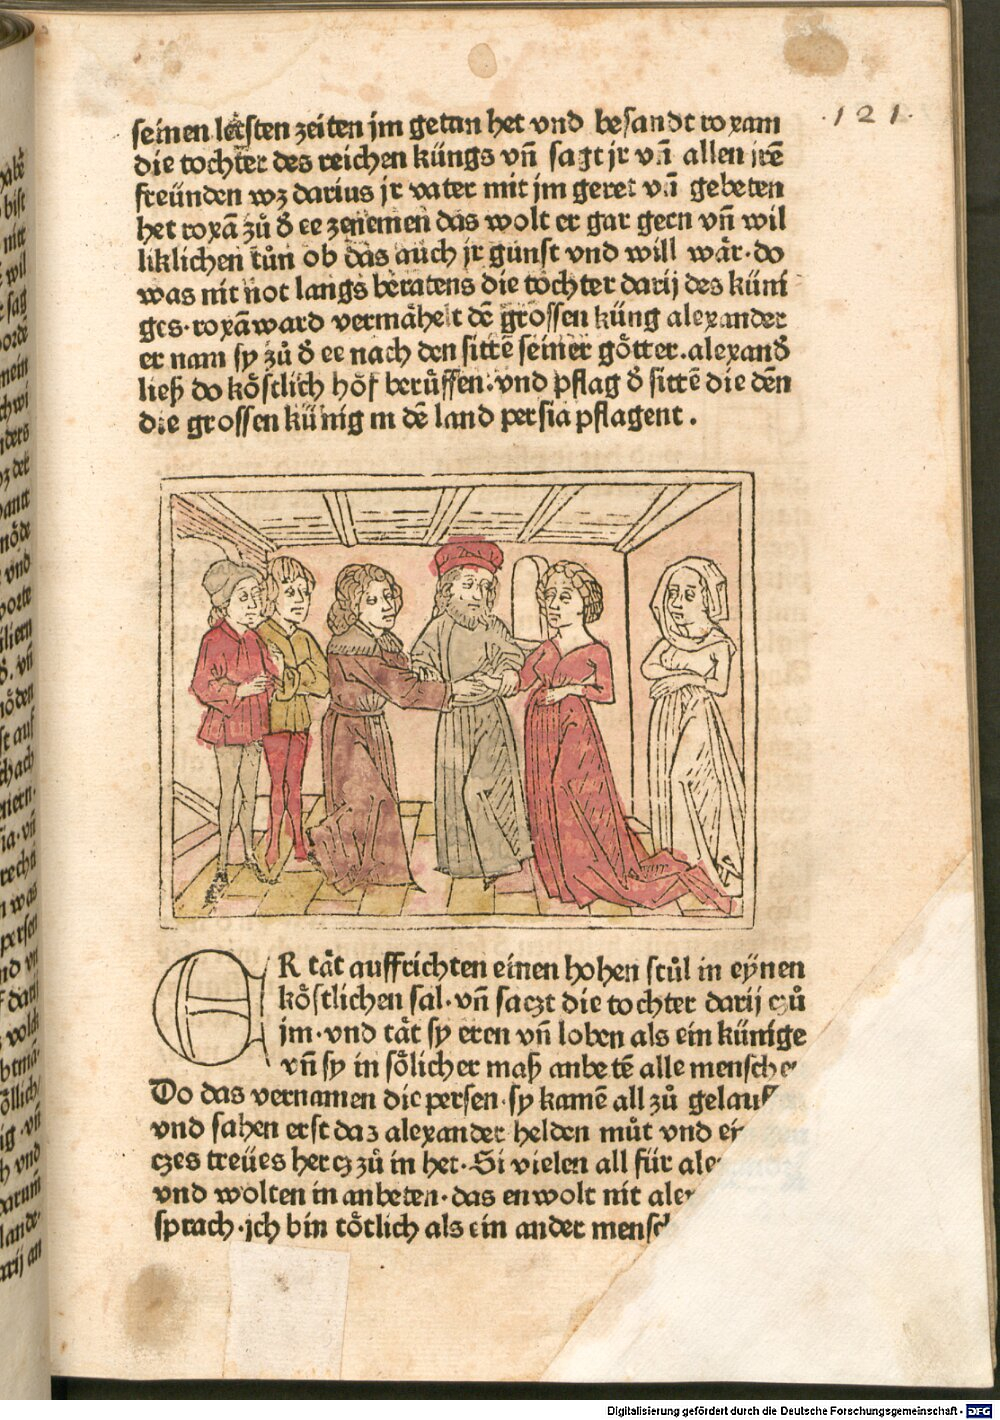 121.
seinen lecsten zeiten jm getan het vnd besandt roxam
die tochter des reichen küngs vn̄ sagt jr vn̄ allen jrē
freünden wz darius jr vater mit jm geret vn̄ gebeten
het roxā zů đ ee zenemen das wolt er gar geen vn̄ wil
liklichen tůn ob das auch jr gunst vnd will wår·do
was nit not langs beratens die tochter darij des küni
ges·roxā ward vermåhelt dē grossen küng alexander
er nam sy zů đ ee nach den sittē seiner gőtter.alexanđ
ließ do kőstlich hőf berůffen.vnd pflag đ sittē die dēn
die grossen künig in dē land persia pflagent.
ER tåt auffrichten einen hohen stůl in eynen
kőstlichen sal·vn̄ saczt die tochter darij czů
jm·vnd tåt sy eren vn̄ loben als ein künige
vn̄ sy in sőlicher maß anbetē alle mensche
Do das vernamen die persen·sy kamē all zů gelauf
vnd sahen erst daz alexander helden můt vnd ei
czes treües hercz zů in het·Si vielen all für ale
vnd wolten in anbeten·das en wolt nit alex
sprach·ich bin tőtlich als ein ander mensch
habē
bist
nitt
wil
sag
mein
schwi
vnd
porte
vn̄
nőden
auf
schach
ia·vn̄
recht
was
persen
vnd
darij
vnd
darum̄
lande·
darij an
Digitalisierung gefördert durch die Deutsche Forschungsgemeinschaft - DFG